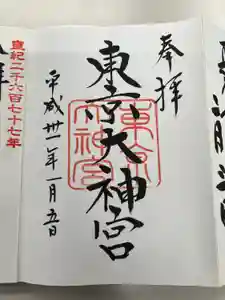 奉拝
東京大神宮
東京
大神宮
平成卅一年一月五日
皇紀二千六百七十七年